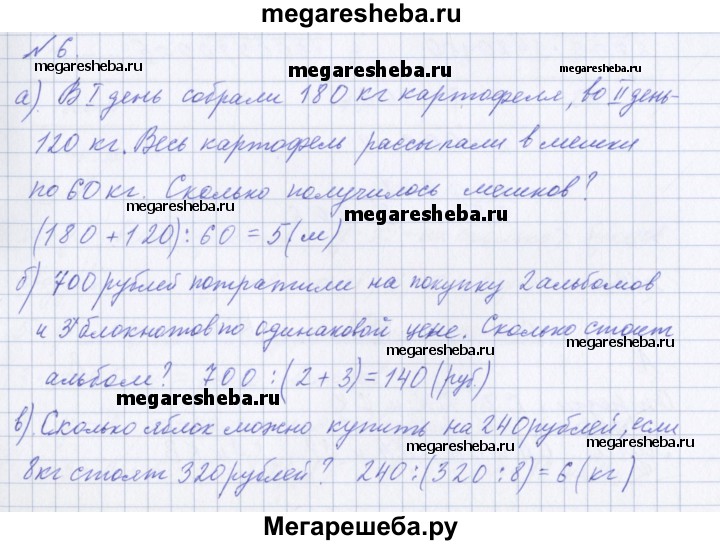 megaresheba.ru
№ 6.
megaresheba.ru megaresheba.ru megaresheba.ru
а) В I день собрали 180 кг картофеля, во II день-
120 кг. Весь картофель рассыпали в мешки
по 60 кг. Сколько получилось мешков?
megaresheba.ru megaresheba.ru
(180 + 120) : 60 = 5 (м)
б) 700 рублей потратили на покупку 2 альбомов
и 3 блокнотов по одинаковой цене. Сколько стоит
megaresheba.ru megaresheba.ru
альбом? 700 : (2 + 3) = 140 (руб)
megaresheba.ru
в) Сколько яблок можно купить на 240 рублей, если
megaresheba.ru megaresheba.ru
8 кг стоят 320 рублей? 240 : (320 : 8) = 6 (кг)
Мегарешеба.ру